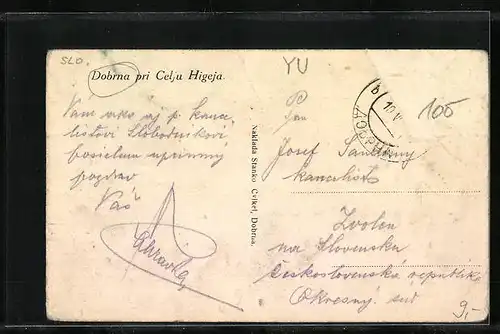 SLO.
Dobrna pri Celju Higeja
YU
Vám ako aj p. kance
listovi Slobodníkovi
posielam úprimný
pozdrav
Váš
Naklada Stanko Cvikel, Dobrna.
Pán
Josef
kancelista
Zvolen
na Slovensku
Československá republika
Okresný súd
DOBRNA
b
105
9,-